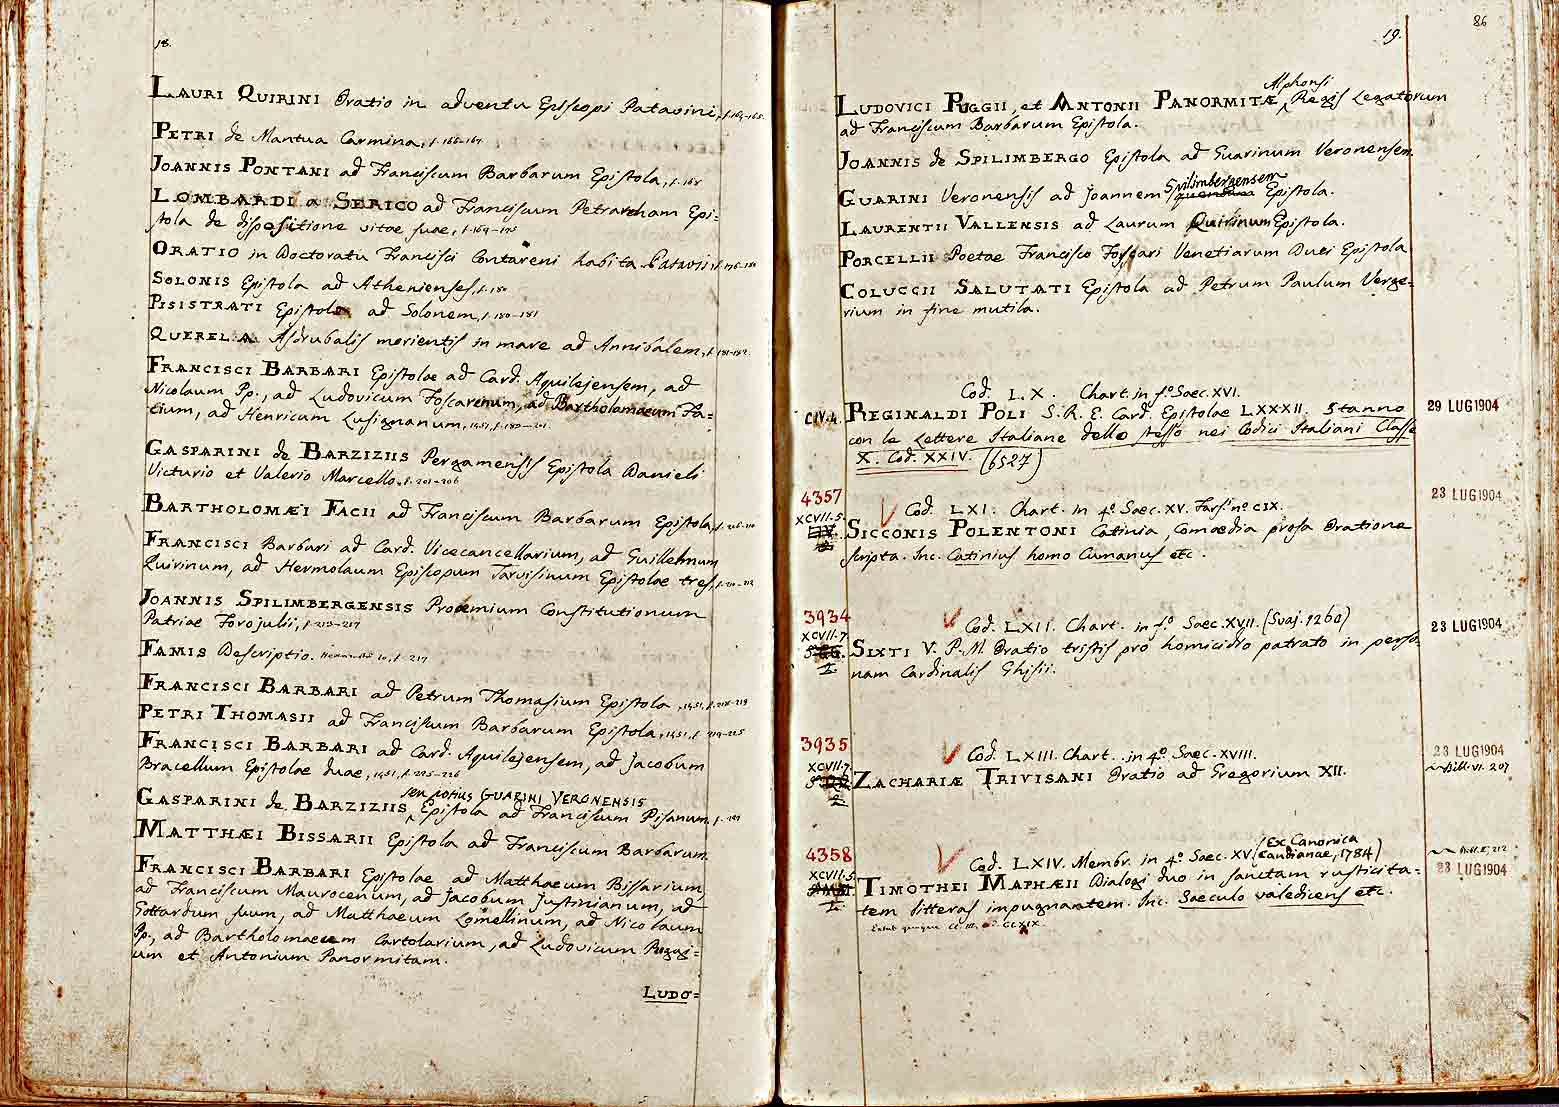 18.
LAURI QUIRINI Oratio in adventu Episcopi Patavini, f. 164-165.
PETRI de Mantua Carmina, f. 166-167
JOANNIS PONTANI ad Franciscum Barbarum Epistola, f. 168
LOMBARDI a SERICO ad Franciscum Petrarcham Epi=
stola de dispositione vitae suae, f. 169-175
ORATIO in Doctoratu Francisci Contareni habita Patavii, f.
SOLONIS Epistola ad Athenienses, f. 180
PISISTRATI Epistola ad Solonem, f. 180-181
QUERELA Asdrubalis morientis in mare ad Annibalem, f. 181-182.
FRANCISCI BARBARI Epistolae ad Card. Aquilejensem, ad
Nicolaum Pp., ad Ludovicum Foscarenum, ad Bartholomaeum Fa=
tium, ad Henricum Lusignanum, 1451, f.
GASPARINI de BARZIZIIS Pergamensis Epistola Danieli
Victurio et Valerio Marcello, f. 201-206
BARTHOLOMÆI FACII ad Franciscum Barbarum Epistola, f.
FRANCISCI Barbari ad Card. Vicecancellarium, ad Guillelmum
Quirinum, ad Hermolaum Episcopum Tarvisinum Epistolae tres, f.
JOANNIS SPILIMBERGENSIS Prooemium Constitutionum
Patriae Forojulii, f. 213-217
FAMIS Descriptio. f. 217
FRANCISCI BARBARI ad Petrum Thomasium Epistola, 1451, f. 218-219
PETRI THOMASII ad Franciscum Barbarum Epistola, 1451, f. 219-225
FRANCISCI BARBARI ad Card. Aquilejensem, ad Jacobum
Bracellum Epistolae duae, 1451, f. 225-226
seu potius GUARINI VERONENSIS
GASPARINI de BARZIZIIS Epistola ad Franciscum Pisanum, f.
MATTHÆI BISSARII Epistola ad Franciscum Barbarum.
FRANCISCI BARBARI Epistolae ad Matthaeum Bissarium,
ad Franciscum Maurocenum, ad Jacobum Justinianum, ad
Gottardum suum, ad Matthaeum Lomellinum, ad Nicolaum
Pp., ad Bartholomaeum Cartolarium, ad Ludovicum Puggi=
um et Antonium Panormitam.
LUDO=
86
19.
Alphonsi
LUDOVICI PUGGII, et ANTONII PANORMITÆ Regis Legatorum
ad Franciscum Barbarum Epistola.
JOANNIS de SPILIMBERGO Epistola ad Guarinum Veronensem.
GUARINI Veronensis ad Joannem Spilimbergensem quendam Epistola.
LAURENTII VALLENSIS ad Laurum Quirinum Epistola.
PORCELLII Poetae Francisco Foscari Venetiarum Duci Epistola
COLUCCII SALUTATI Epistola ad Petrum Paulum Verge=
rium in fine mutila.
Cod. LX. Chart. in fo. Saec. XVI.
CIV.4. REGINALDI POLI S. R. E. Card. Epistolae LXXXII. Stanno 29 LUG 1904
con le Lettere Italiane dello stesso nei Codici Italiani Classe
X. Cod. XXIV. (6527)
4357 23 LUG 1904
XCVII.5. Cod. LXI. Chart. in 4o. Saec. XV. Fars. no CIX.
SICCONIS POLENTONI Catinia, Comoedia prosa Oratione
scripta. Inc. Catinius homo Cumanus etc.
3934
XCVII.7 Cod. LXII. Chart. in fo. Saec. XVII. (Svaj. 1260) 23 LUG 1904
SIXTI V. P. M. Oratio tristis pro homicidio patrato in perso=
nam Cardinalis Ghisii.
3935 23 LUG 1904
XCVII.7. Cod. LXIII. Chart. in 4o. Saec. XVIII. Bill. VI. 207
ZACHARIÆ TRIVISANI Oratio ad Gregorium XII.
4358 (Ex Canonica
XCVII.5 Cod. LXIV. Membr. in 4o. Saec. XV. Candianae, 1784) 23 LUG 1904
TIMOTHEI MAPHÆII Dialogi duo in sanctam rusticita=
tem litteras impugnantem. Inc. Saeculo valedicens etc.
CLXIX.